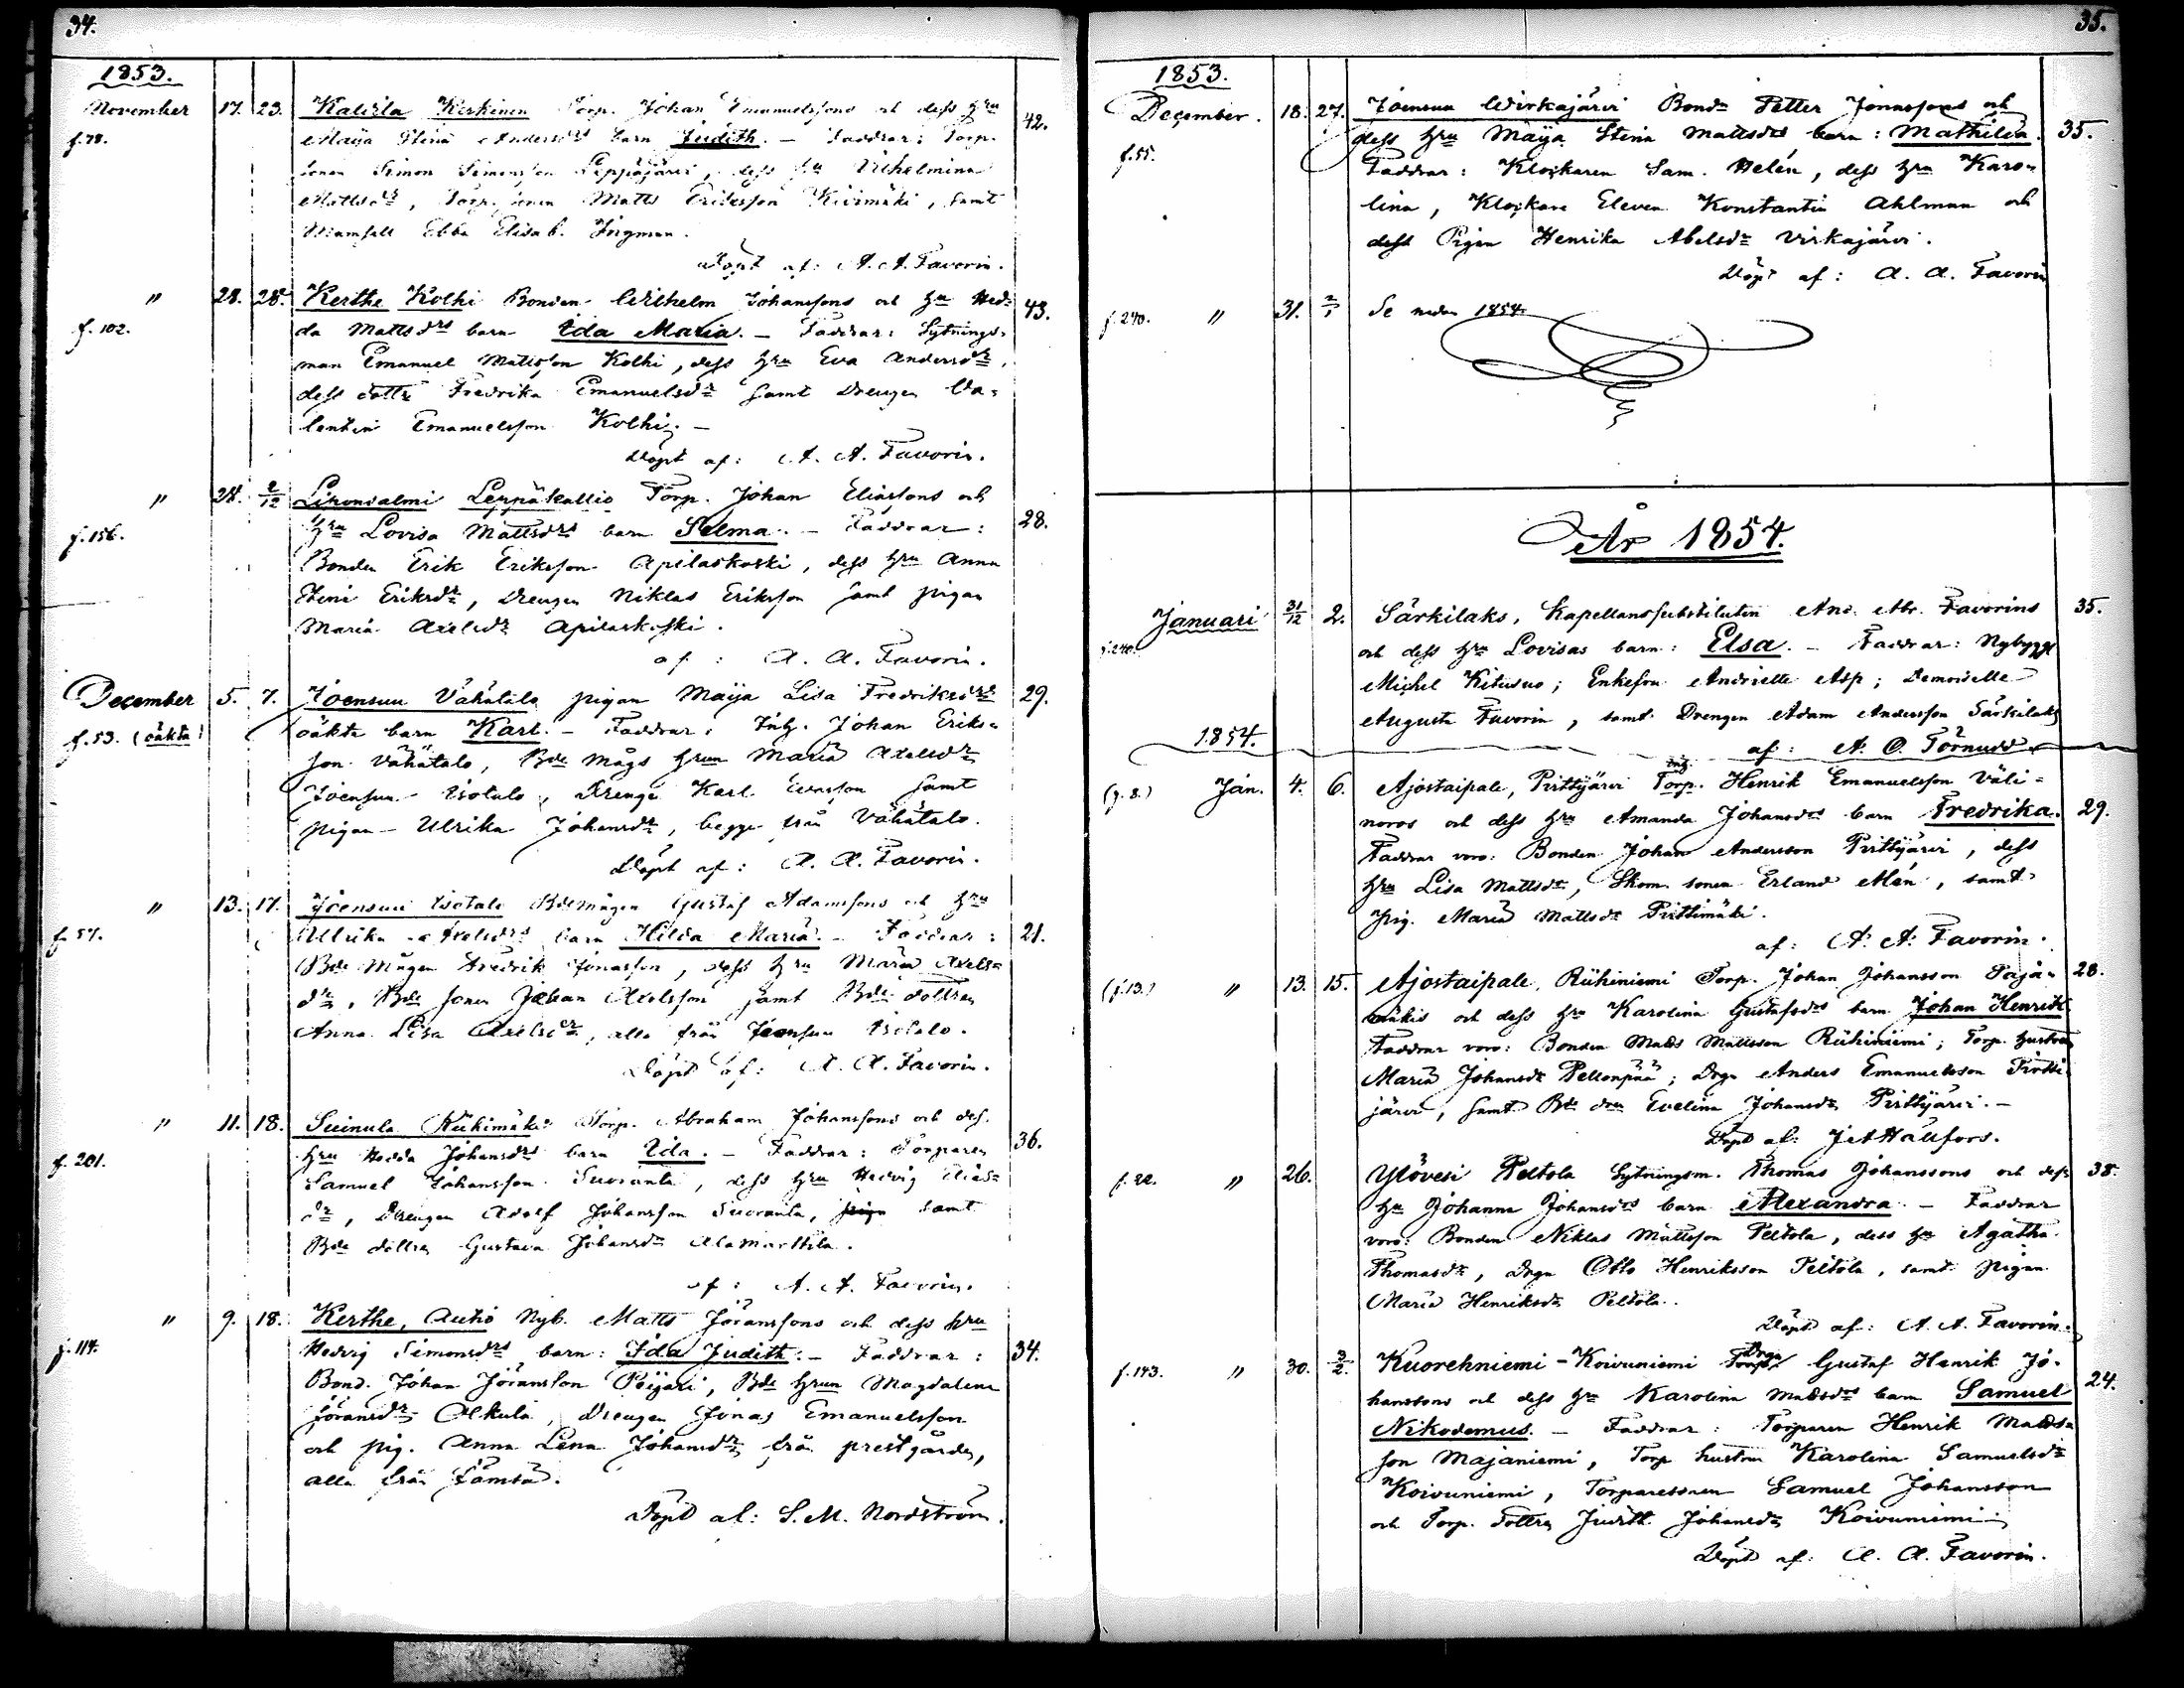 34.
1853.
November 17. 23. Katisla Kerkinen Torp. Johan Emanuelssons och dess hru
f. 78. Maija Stina Andersdrs barn Judith. – Faddrar: Torp. 42.
sonen Simon Simonsson Leppäjärvi, dess hru Vilhelmina
Mattsdr, Torp. sonen Matts Eriksson Kivimäki, samt
Mamsell Ebba Elisab.
Döpt af: A. A. Favorin.
" 24. 28. Kerthe Kolhi Bonden Wilhelm Johanssons och hru Hed- 43.
f. 102. da Mattsdrs barn Ida Maria. – Faddrar: Sytnings-
man Emanuel Mattsson Kolhi, dess hru Eva Andersdr,
dess dottr Fredrika Emanuelsdr samt Drengen Va-
lentin Emanuelsson Kolhi. –
Döpt af: A. A. Favorin.
" 24. 2/12 Leppäkallio Torp. Johan Eliassons och
f. 156. hru Lovisa Mattsdrs barn Selma. – Faddrar: 28.
Bonden Erik Eriksson Apilaskoski, dess hru Anna
Stina Eriksdr, Drengen Niklas Eriksson samt pigan
Maria Axelsdr Apilaskoski.
af: A. A. Favorin.
December 5. 7. Joensuu Vähätalo pigan Maija Lisa Fredriksdrs 29.
f. 53. (oäkta) oäkta barn Karl. – Faddrar: Inh. Johan Eriks-
son Vähätalo, Bde mågs hrun Maria Axelsdr
Joensuu Isotalo, Drenge Karl Evasson samt
pigan Ulrika Johansdr, begge från Vähätalo.
Döpt af: A. A. Favorin.
" 13. 17. Joensuu Isotalo Bdemågen Gustaf Adamssons och hru
f. 57. Ullrika Axelsdrs barn Hilda Maria. – Faddrar: 21.
Bde Mågen Fredrik Jonasson, dess hru Maria Axels-
dr, Bde sonen Johan Axelsson samt Bde dottren
Anna Lisa Axelsdr, alla från Joensuu Isotalo.
Döpt af: A. A. Favorin.
" 11. 18. Suinula Riihimäki Torp. Abraham Johanssons och dess
f. 201. hru Hedda Johansdrs barn Ida. – Faddrar: Torparen 36.
Samuel Johansson Suoranta, dess hru Hedvig Elias-
dr, Drengen Adolf Johansson Suoranta, piga samt
Bde dottren Gustava Johansdr Alamarttila.
af: A. A. Favorin.
" 9. 18. Kerthe, Autio Nyb. Matts Göranssons och dess hru
f. 114. Hedvig Simonsdrs barn: Ida Judith. – Faddrar: 34.
Bond. Johan Göransson Päijäri, Bde hrun Magdalena
Göransdr Olkula, Drengen Jonas Emanuelsson
och pig. Anna Lena Johansdr från prestgården,
alla från Jämsä.
Döpt af: S. M. Nordström.
35.
1853.
December. 18. 27. Joensuu Wirkajärvi Bondn Petter Jonassons och
f. 55. dess hru Maija Stina Mattsdrs barn: Mathilda. 35.
Faddrar: Klockaren Sam. Helén, dess hru Karo-
lina, Klockare Eleven Konstantin Ahlman och
dess Pigan Henrika Abelsdr Virkajärvi.
Döpt af: A. A. Favorin
f. 240. " 31. 2/1 Se nedan 1854.
År 1854.
Januari 31/12 2. Särkilaks, Kapellanssubstituten And. Abr. Favorins 35.
f. 240. och dess hru Lovisas barn: Elsa. – Faddrar: Nybygg.
Michel Kitusuo; Enkefru Andriette Asp; Demoiselle
Augusta Favorin, samt Drengen Adam Andersson Särkilaks
1854. af: A. O. Törnudd
(f. 8.) Jan. 4. 6. Ajostaipale, Pirttijärvi Torp. Inh. Henrik Emanuelsson Väli-
noros och dess hru Amanda Johansdrs barn Fredrika. 29.
Faddrar voro: Bonden Johan Andersson Pirttijärvi, dess
hru Lisa Mattsdr, Skom. sonen Erland Alén, samt
pig. Maria Mattsdr Pirttimäki.
af: A. A. Favorin.
(f. 13.) " 13. 15. Ajostaipale, Riihiniemi Torp. Johan Johansson Paja- 28.
mäkis och dess hru Karolina Gustafsdrs barn Johan Henrik
Faddrar voro: Bonden Matts Mattsson Riihiniemi; Torp. hustrun
Maria Johansdr Pellonpää; Drgn Anders Emanuelsson Pirtti-
järvi, samt Bde drn Evelina Johansdr Pirttijärvi. –
Döpt af: J. et Hällfors.
f. 22. " 26. Ylövesi Peltola Sytningsm. Thomas Johanssons och dess 38.
hru Johanna Johansdrs barn Alexandra. – Faddrar
voro: Bonden Niklas Mattsson Peltola, dess hru Agatha
Thomasdr, Drgn Otto Henriksson Peltola, samt pigan
Maria Henriksdr Peltola.
Döpt af: A. A. Favorin.
f. 143. " 30. 3/2. Kuorehniemi – Koivuniemi Torp. Drgn Gustaf Henrik Jo-
hanssons och dess hru Karolina Mattsdrs barn Samuel 24.
Nikodemus. – Faddrar: Torparen Henrik Matts-
son Majaniemi, Torp hustrun Karolina Samuelsdr
Koivuniemi, Torparesonen Samuel Johansson
och Torp. dottren Judith Johansdr Koivuniemi
Döpt af: A. A. Favorin.